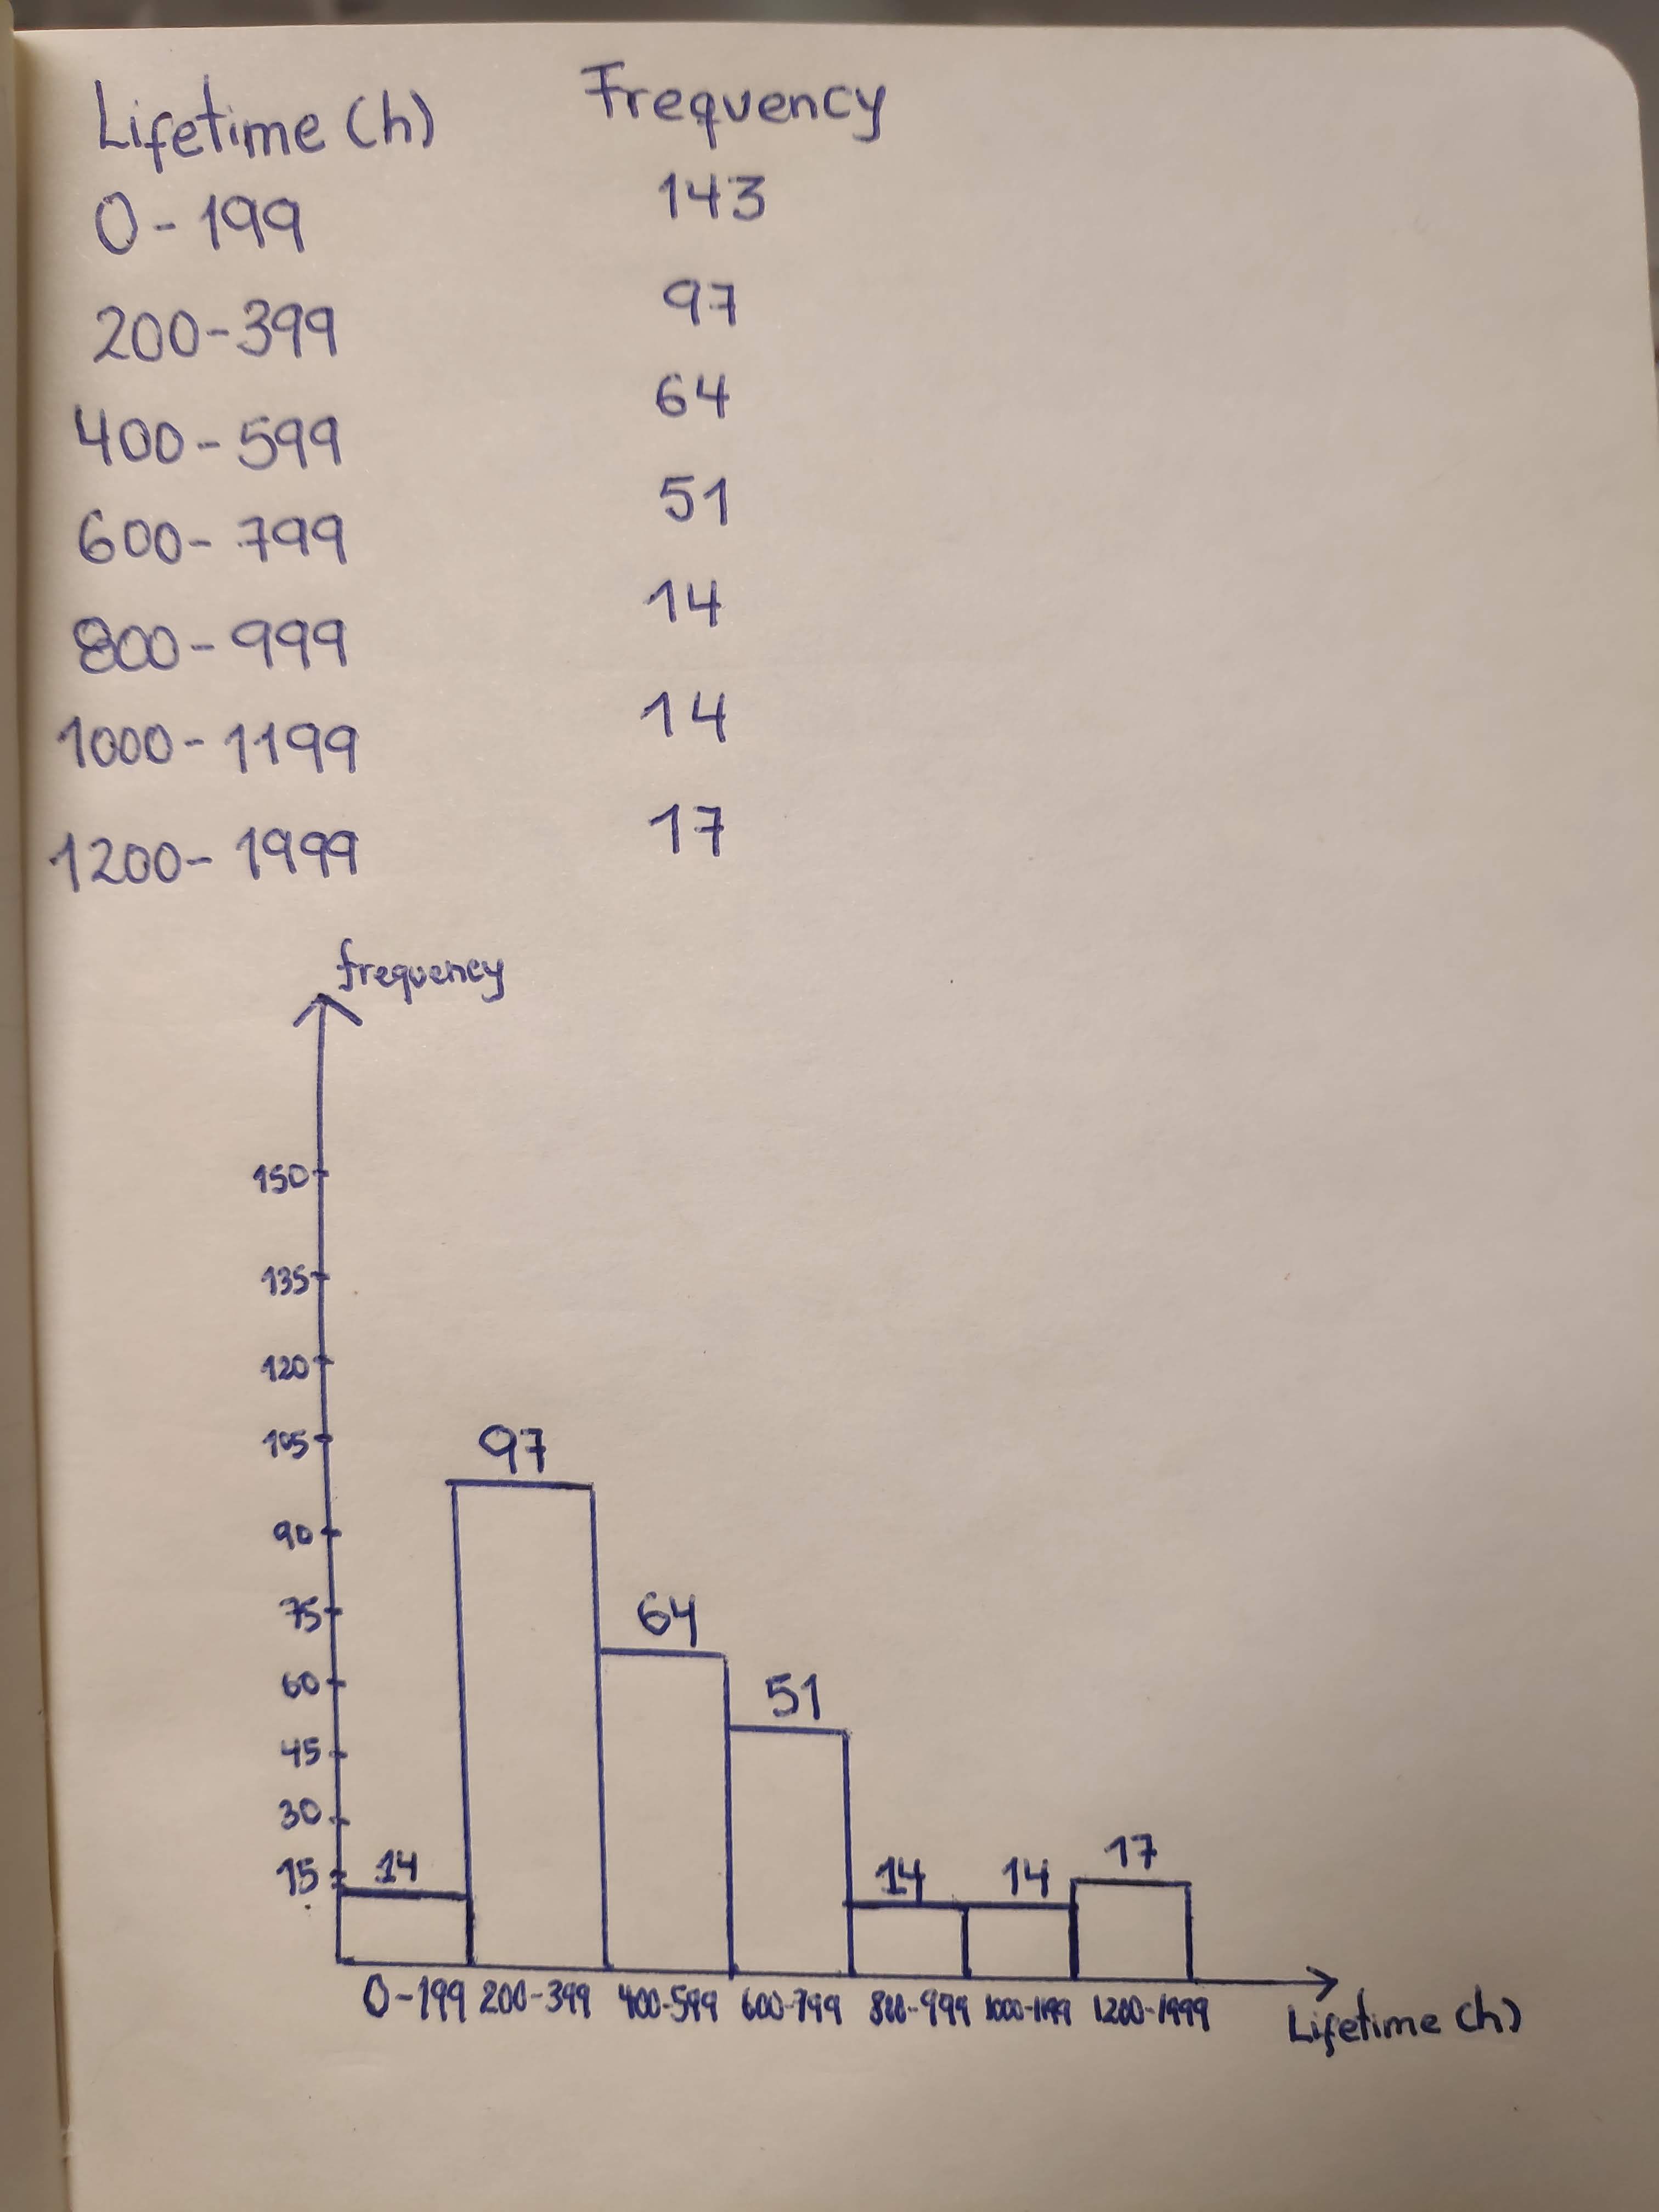 Lifetime (h) Frequency
0-199 143
200-399 97
400-599 64
600-799 51
800-999 14
1000-1199 14
1200-1999 17
frequency
150
135
120
105
97
90
75
64
60
51
45
30
17
15 14 14 14
0-199 200-399 400-599 600-799 800-999 1000-1199 1200-1999
Lifetime (h)